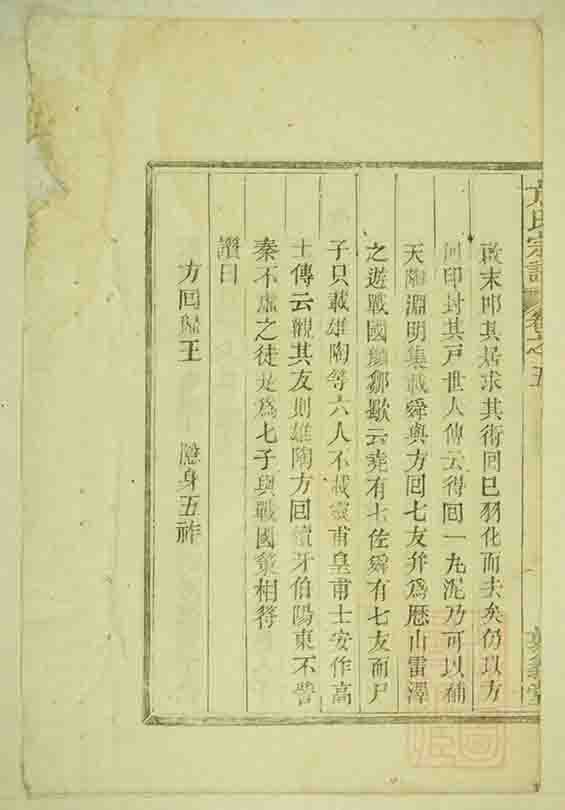 方氏宗譜 卷之五
啟末叩其居求其術回已羽化而去矣仍以方
回印封其戸世人傳云得回一丸泥乃可以補
天陶淵明集載舜與方回七友并爲歷山雷澤
之遊戰國顔歜云堯有七佐舜有七友而尸
子只載雄陶等六人不載靈甫皇甫士安作高
士傳云觀其友則雄陶方回續牙伯陽東不訾
秦不虛之徒是爲七子與戰國策相符
讚曰
方回歸王 隱身五祚